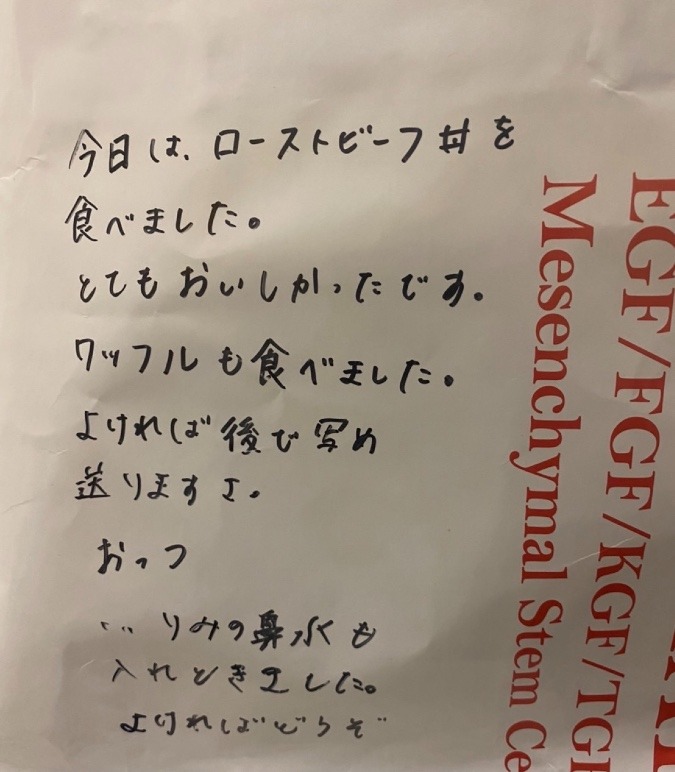 今日は、ローストビーフ丼を
食べました。
とてもおいしかったです。
ワッフルも食べました。
よければ後で写め
送りますよ。
おっつ
りみの鼻水も
入れときました。
よければどうぞ
EGF/FGF/KGF/TGF
Mesenchymal Stem Ce